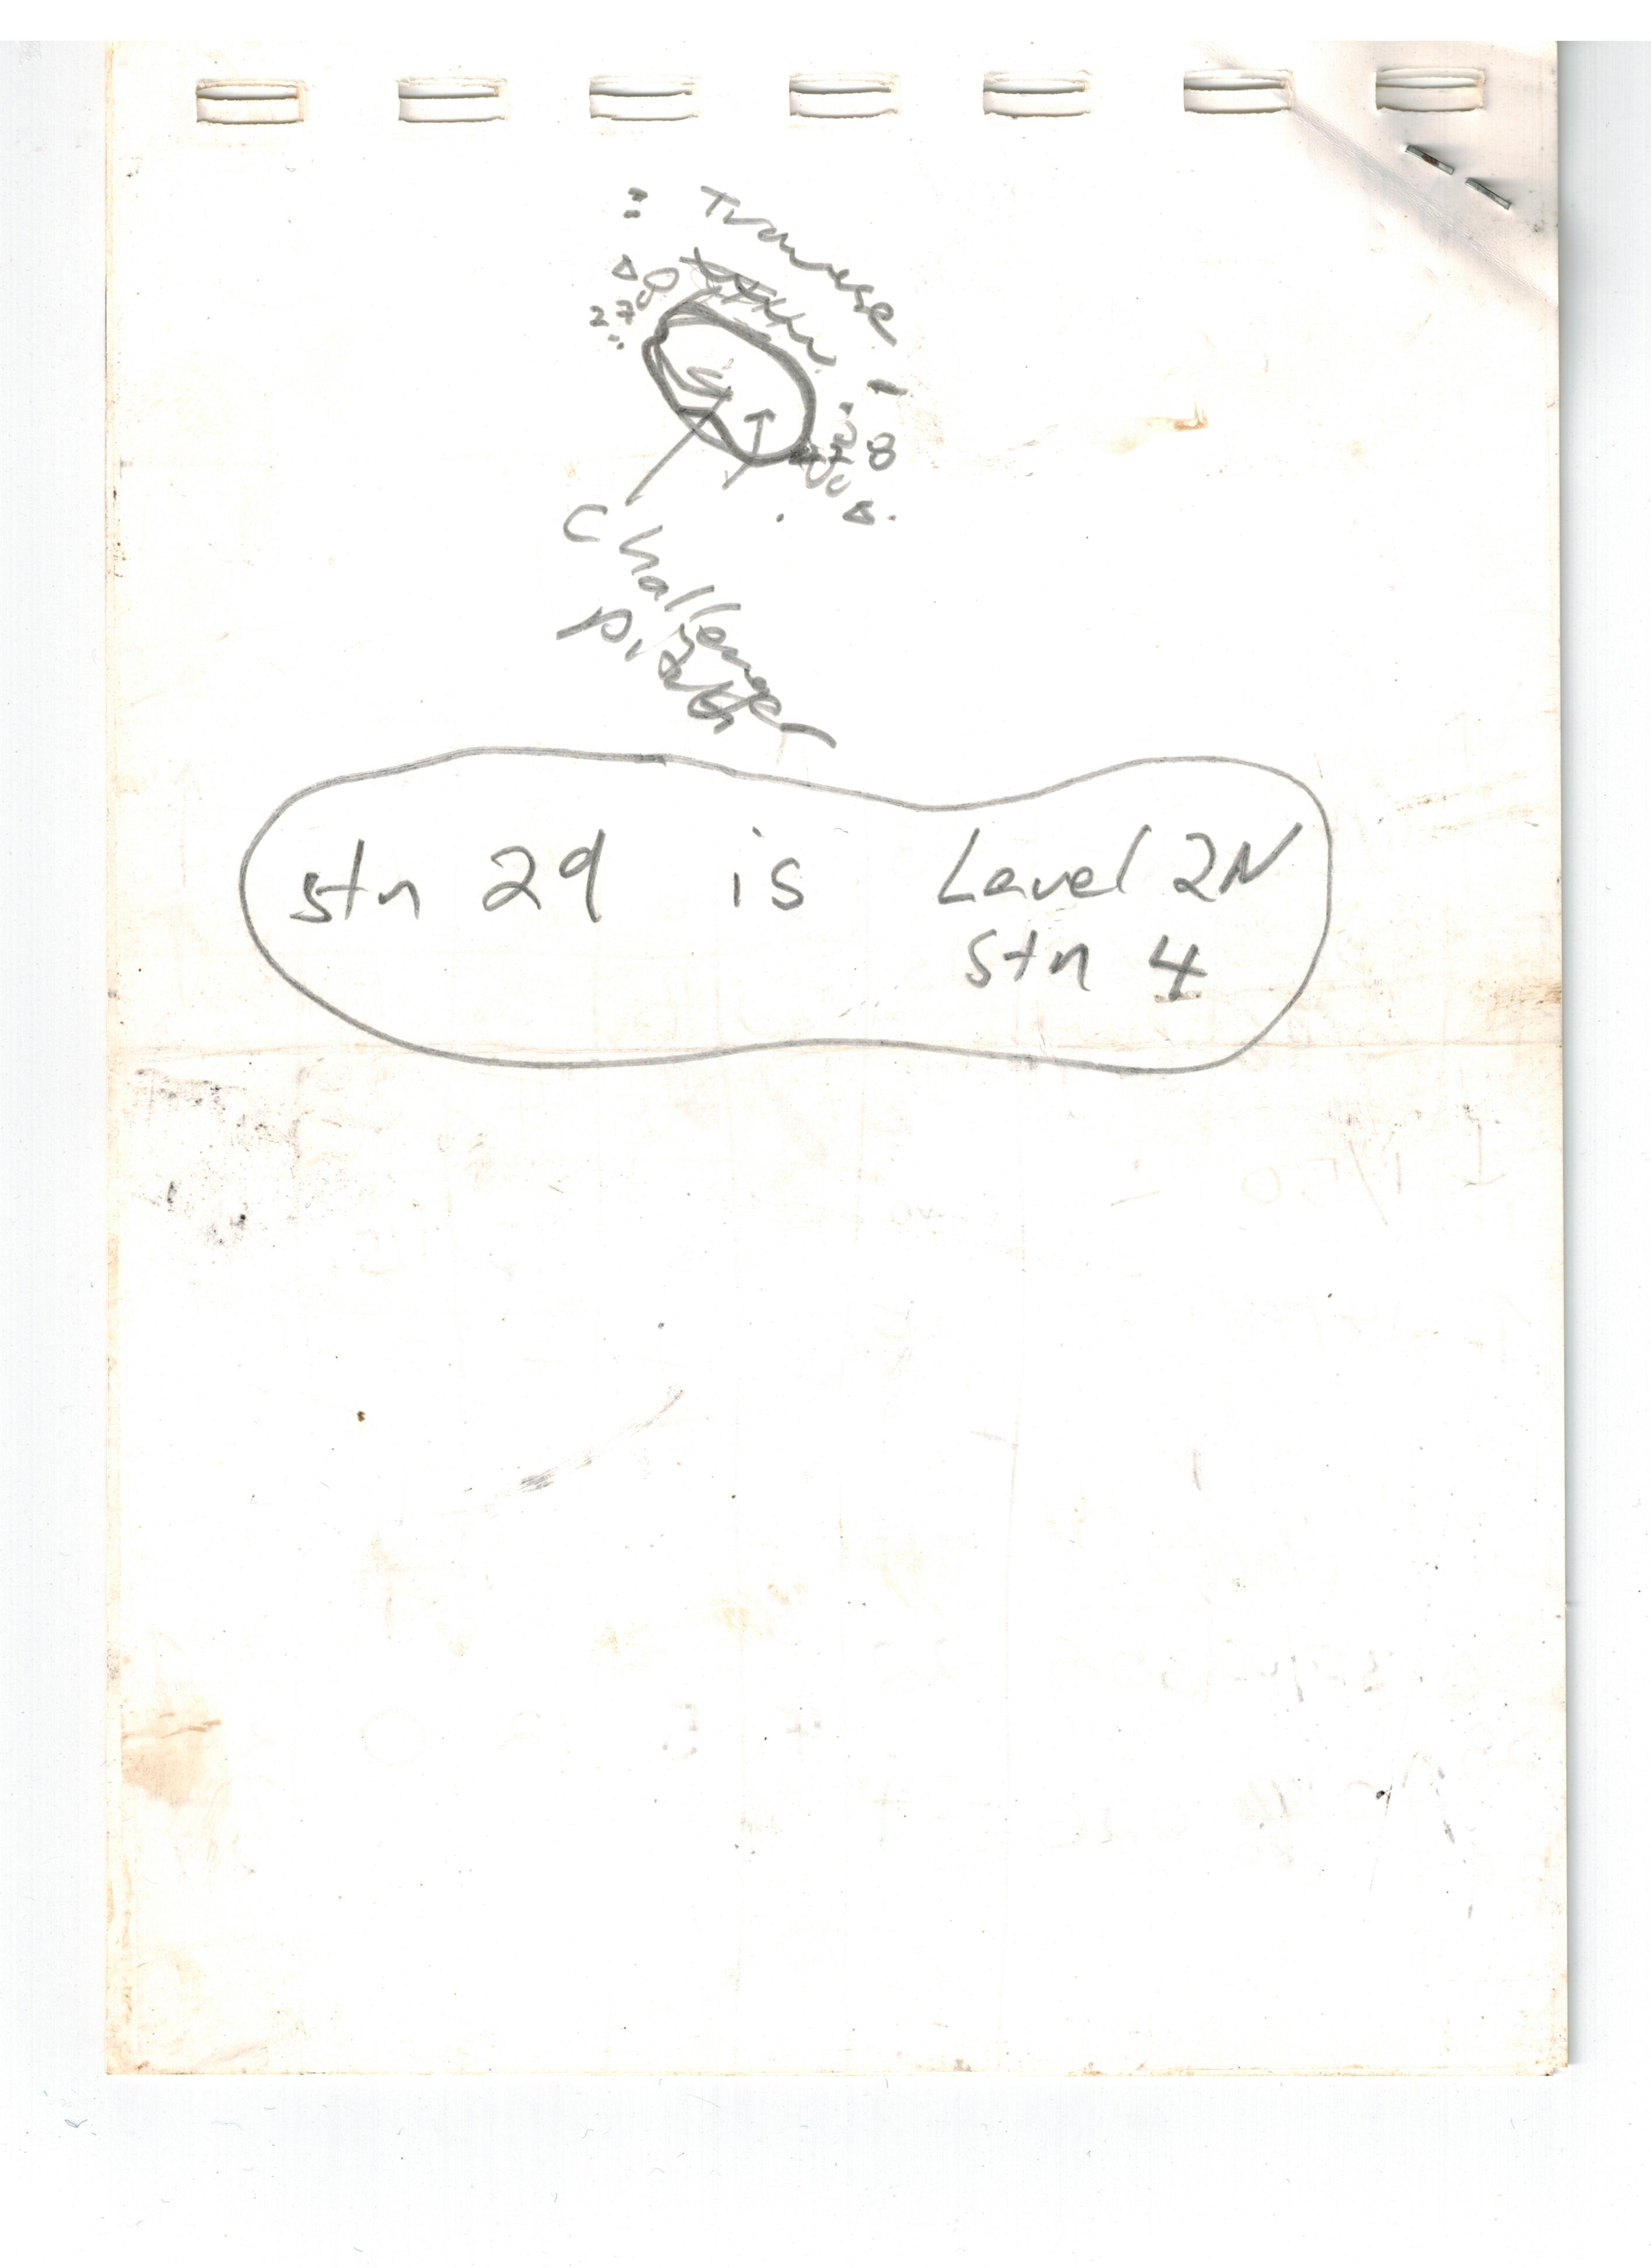 Traverse
27
28
Challenger
stn 29 is Level 2N
stn 4